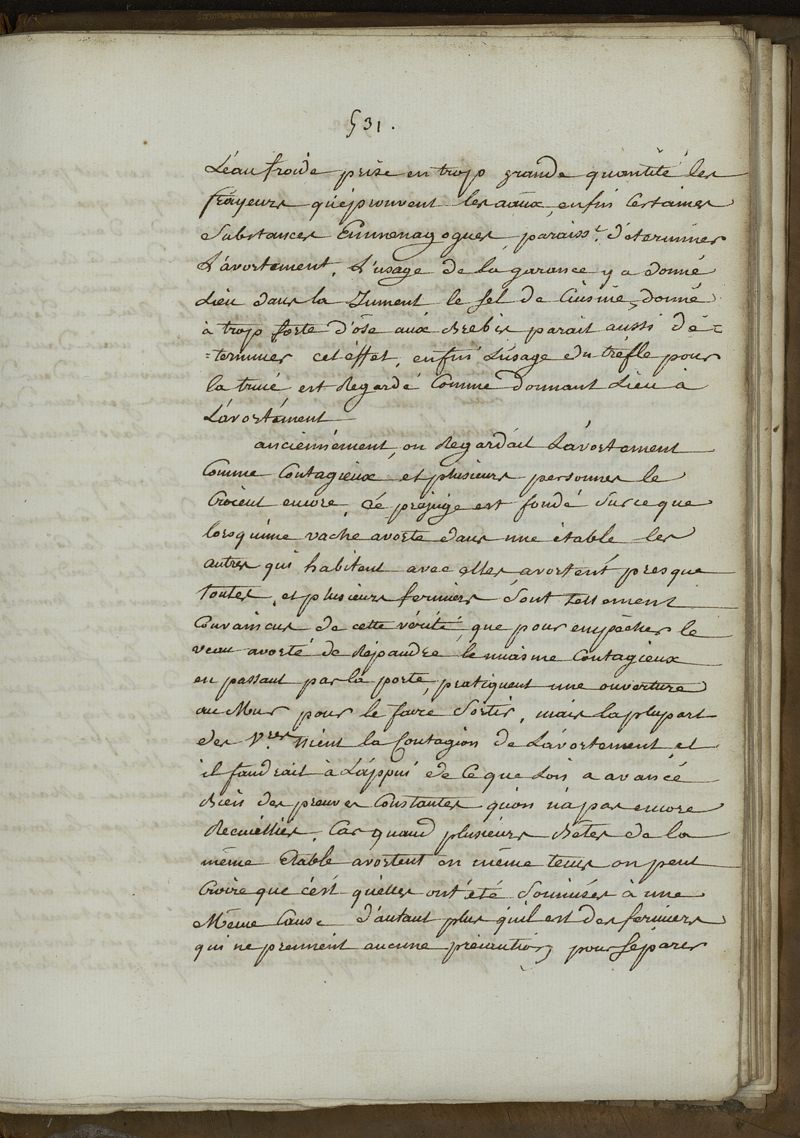 531.
L'éau froide prise en trop grande quantité les
fraÿeurs qu'éprouvent les aãux, enfin Certaines
Substances Emmenagogues, paraiss.t d'éterminer
L'avortement, L'usage de la garance y a donné
Lieu dans la Jument le sel de Cuisine, donné
à trop forte d'ôse aux Brebis parait aussi dé=
=terminer cet éffet, enfin L'usage du tréfle pour
la truië est Regardé Comme donnant Lieu à
L'avortément
anciennément, on Regardait L'avortement
Comme Contagieux et plusieurs personnes le
Croient encore, Ce préjugé est fondé Sur ce que
lorsqu'une vache avorte dans une étable les
autres qui habitent avec elles avortent presque
toutes, et plusieurs fermiers Sont tellement
Convaincus de cette vérité, que pour empécher le
veau avorté de Répandre le miasme Contagieux
en passant par la porte, pratiquent une ouverture
au Mur pour le faire Sortir, mais la plupart
des V.res Nient la Contagion de L'avortement et
il faudrait à L'appui de Ce que L'on a avancé
Bien des preuves Constantes qu'on n'a pas encore
Recuëillies, Car quand plusieurs Bêtes de la
même Etable avortent en même tems on peut
Croire que c'ést qu'elles ont été Soumises à une
Même Cause d'autant plus qu'il est des fermiers
qui ne prennent aucune précaution pour Séparer